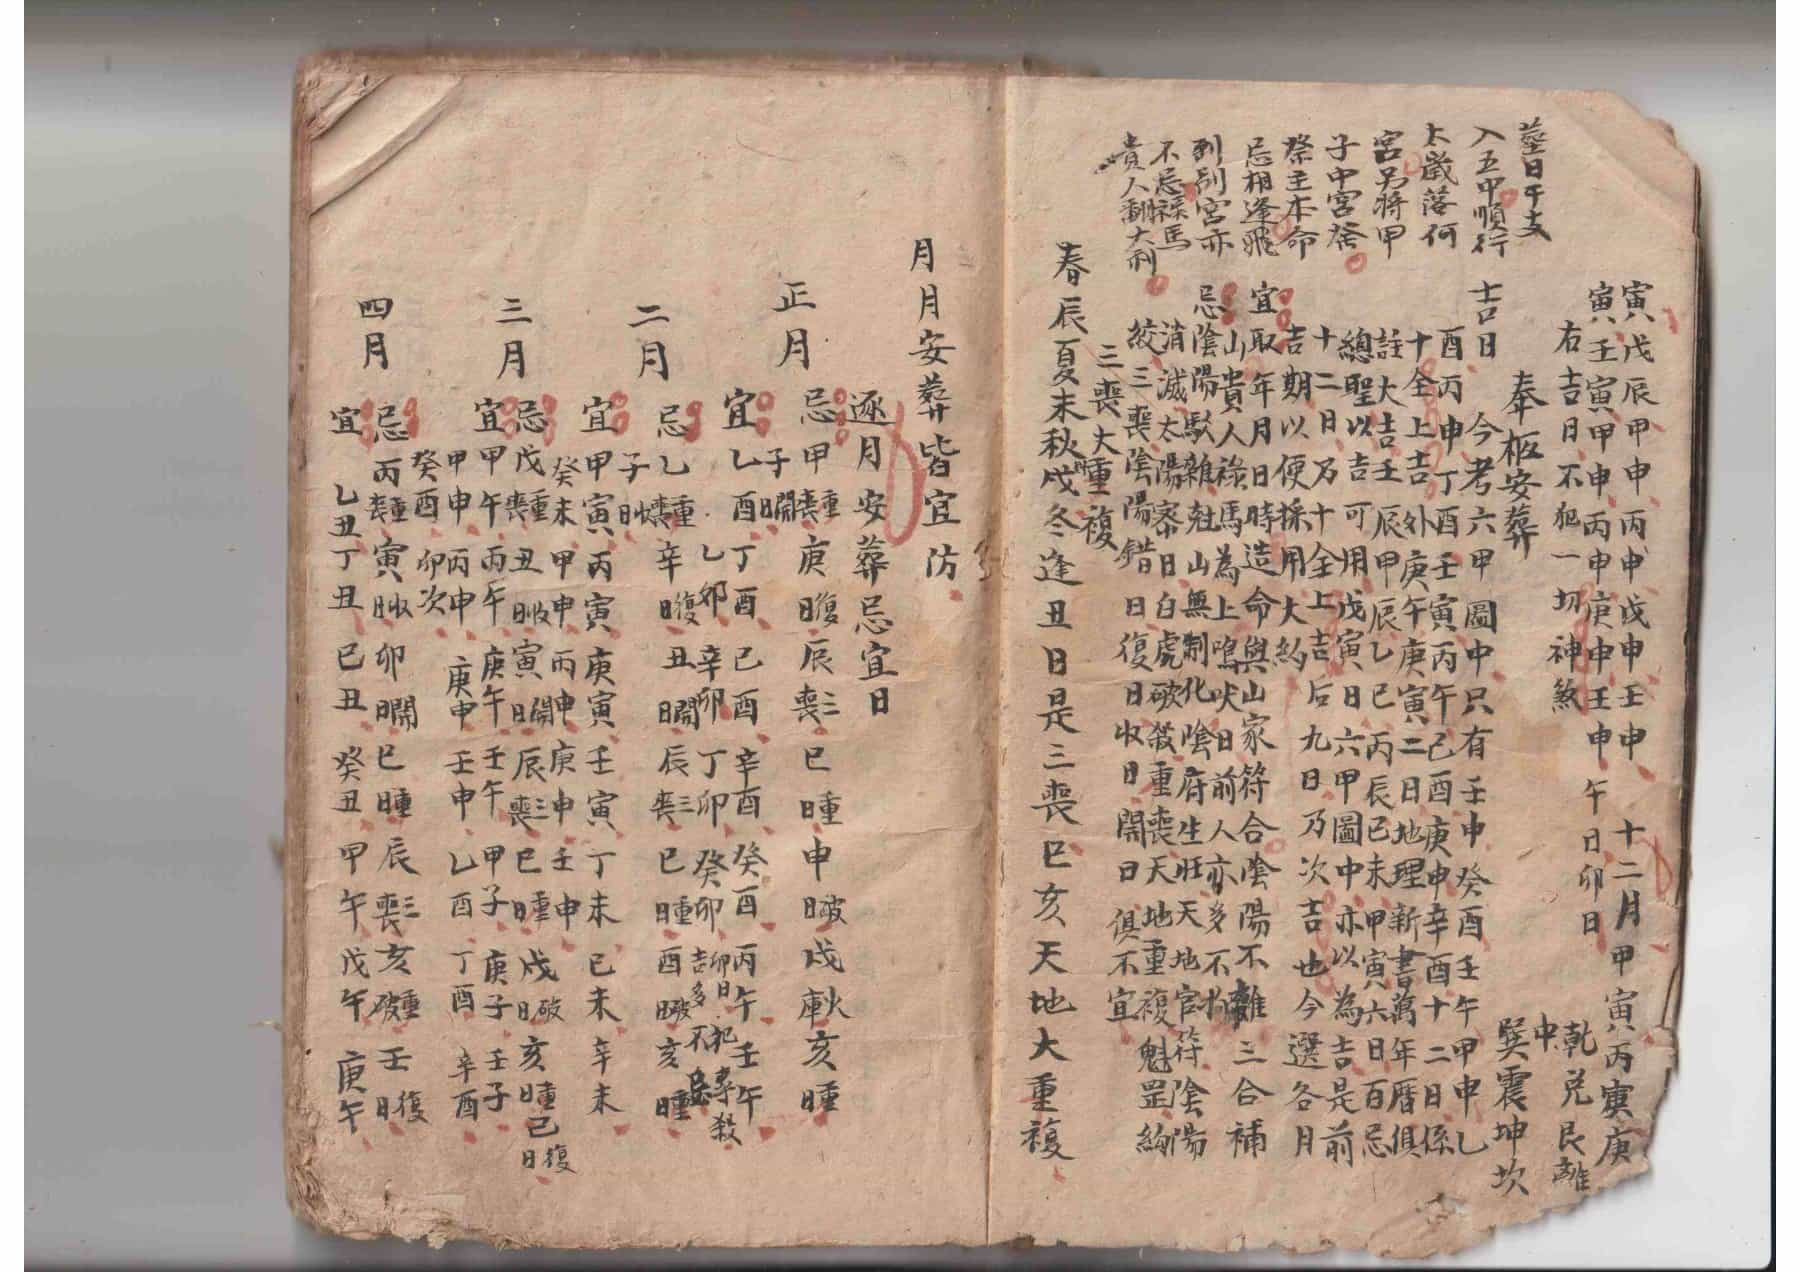 塟日干支
入五中順行
太歲落何
宮另將甲
子中宮發
祭主本命
忌相逢飛
到別宮亦
不忌祿馬
貴人翻大利
寅戊辰甲申丙申戊申壬申　十二月甲寅丙寅庚
寅壬寅甲申丙申庚申壬申午日卯日
右吉日不犯一切神煞
乾兌艮離
中
巽震坤坎
奉柩安葬
吉日　今考六甲圖中只有壬申癸酉壬午甲申乙
酉丙申丁酉壬寅丙午己酉庚申辛酉十二日係
十全上吉外庚午庚寅二日地理新書萬年曆俱
註大吉壬辰甲辰乙巳丙辰己未甲寅六日百忌
總聖以吉可用戊寅日六甲圖中亦以為吉是前
十二日乃十全上吉后九日乃次吉也今選各月
吉期以便採用大約
宜取年月日時造命與山家符合陰陽不雜三合補
山貴人祿馬為上鳴吠日前人亦多不拘
忌陰陽駁雜尅山無制化陰府生旺天地官符陰陽
消滅太陽密日白虎破殺重喪天地重複魁罡絇
絞三喪陰陽錯日復日收日開日俱不宜
三喪大重複
春辰夏未秋戌冬逢丑日是三喪巳亥天地大重複
月月安葬皆宜防
逐月安葬忌宜日
正月　忌甲重喪庚復日辰三喪巳重日申破日戌火庫亥重日
子開日
宜乙酉丁酉己酉辛酉癸酉丙午壬午
乙卯辛卯丁卯癸卯卯日吉多不忌
二月　忌乙重喪辛復日丑開日辰三喪巳重日酉破日亥重日
子收日
宜甲寅丙寅庚寅壬寅丁未己未辛未
癸未甲申丙申庚申壬申
三月　忌戊重喪丑收日寅開日辰三喪巳重日戌破日亥重日己復日
宜甲午丙午庚午壬午甲子庚子壬子
甲申丙申庚申壬申乙酉丁酉辛酉
癸酉卯次
四月　忌丙重喪寅收日卯開日巳重日辰三喪亥重破壬復日
宜乙丑丁丑己丑癸丑甲午戊午庚午